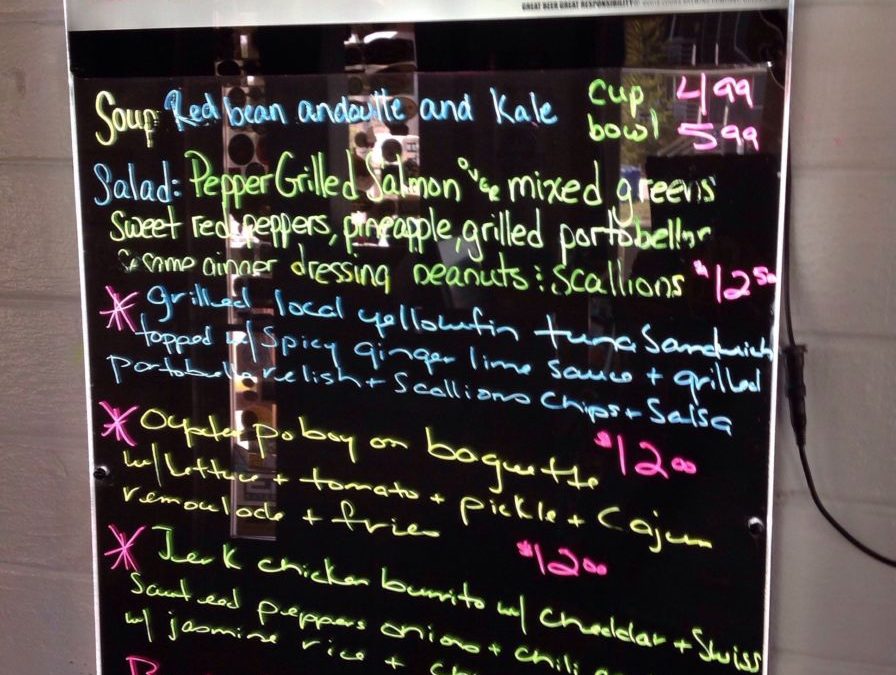 GREAT BEER GREAT RESPONSIBILITY
Soup Red bean andouille and Kale cup 499
bowl 599
Salad: Pepper Grilled Salmon over mixed greens
Sweet red peppers, pineapple, grilled portobello
Sesame ginger dressing peanuts : scallions $12 50
* grilled local yellowfin tuna Sandwich
topped w/ Spicy ginger lime sauce + grilled
portobella relish + Scallions Chips + Salsa
* Oyster po boy on baguette $12 00
w/ lettuce + tomato + pickle + Cajun
remoulade + fries
$12 00
* Jerk chicken burrito w/ cheddar + Swiss
Sauteed peppers onions + chili
w/ jasmine rice +